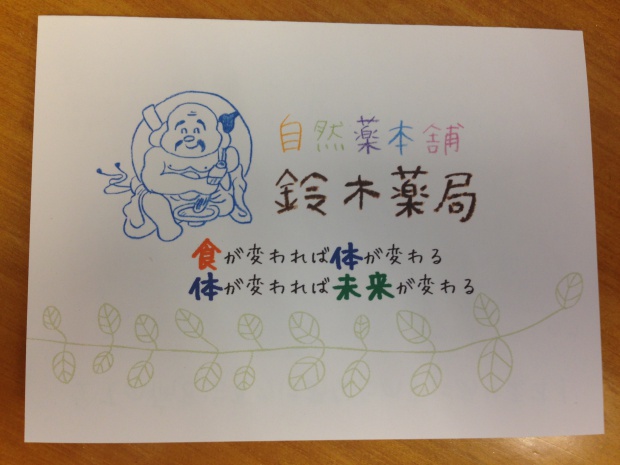 自然薬本舗
鈴木薬局
食が変われば体が変わる
体が変われば未来が変わる